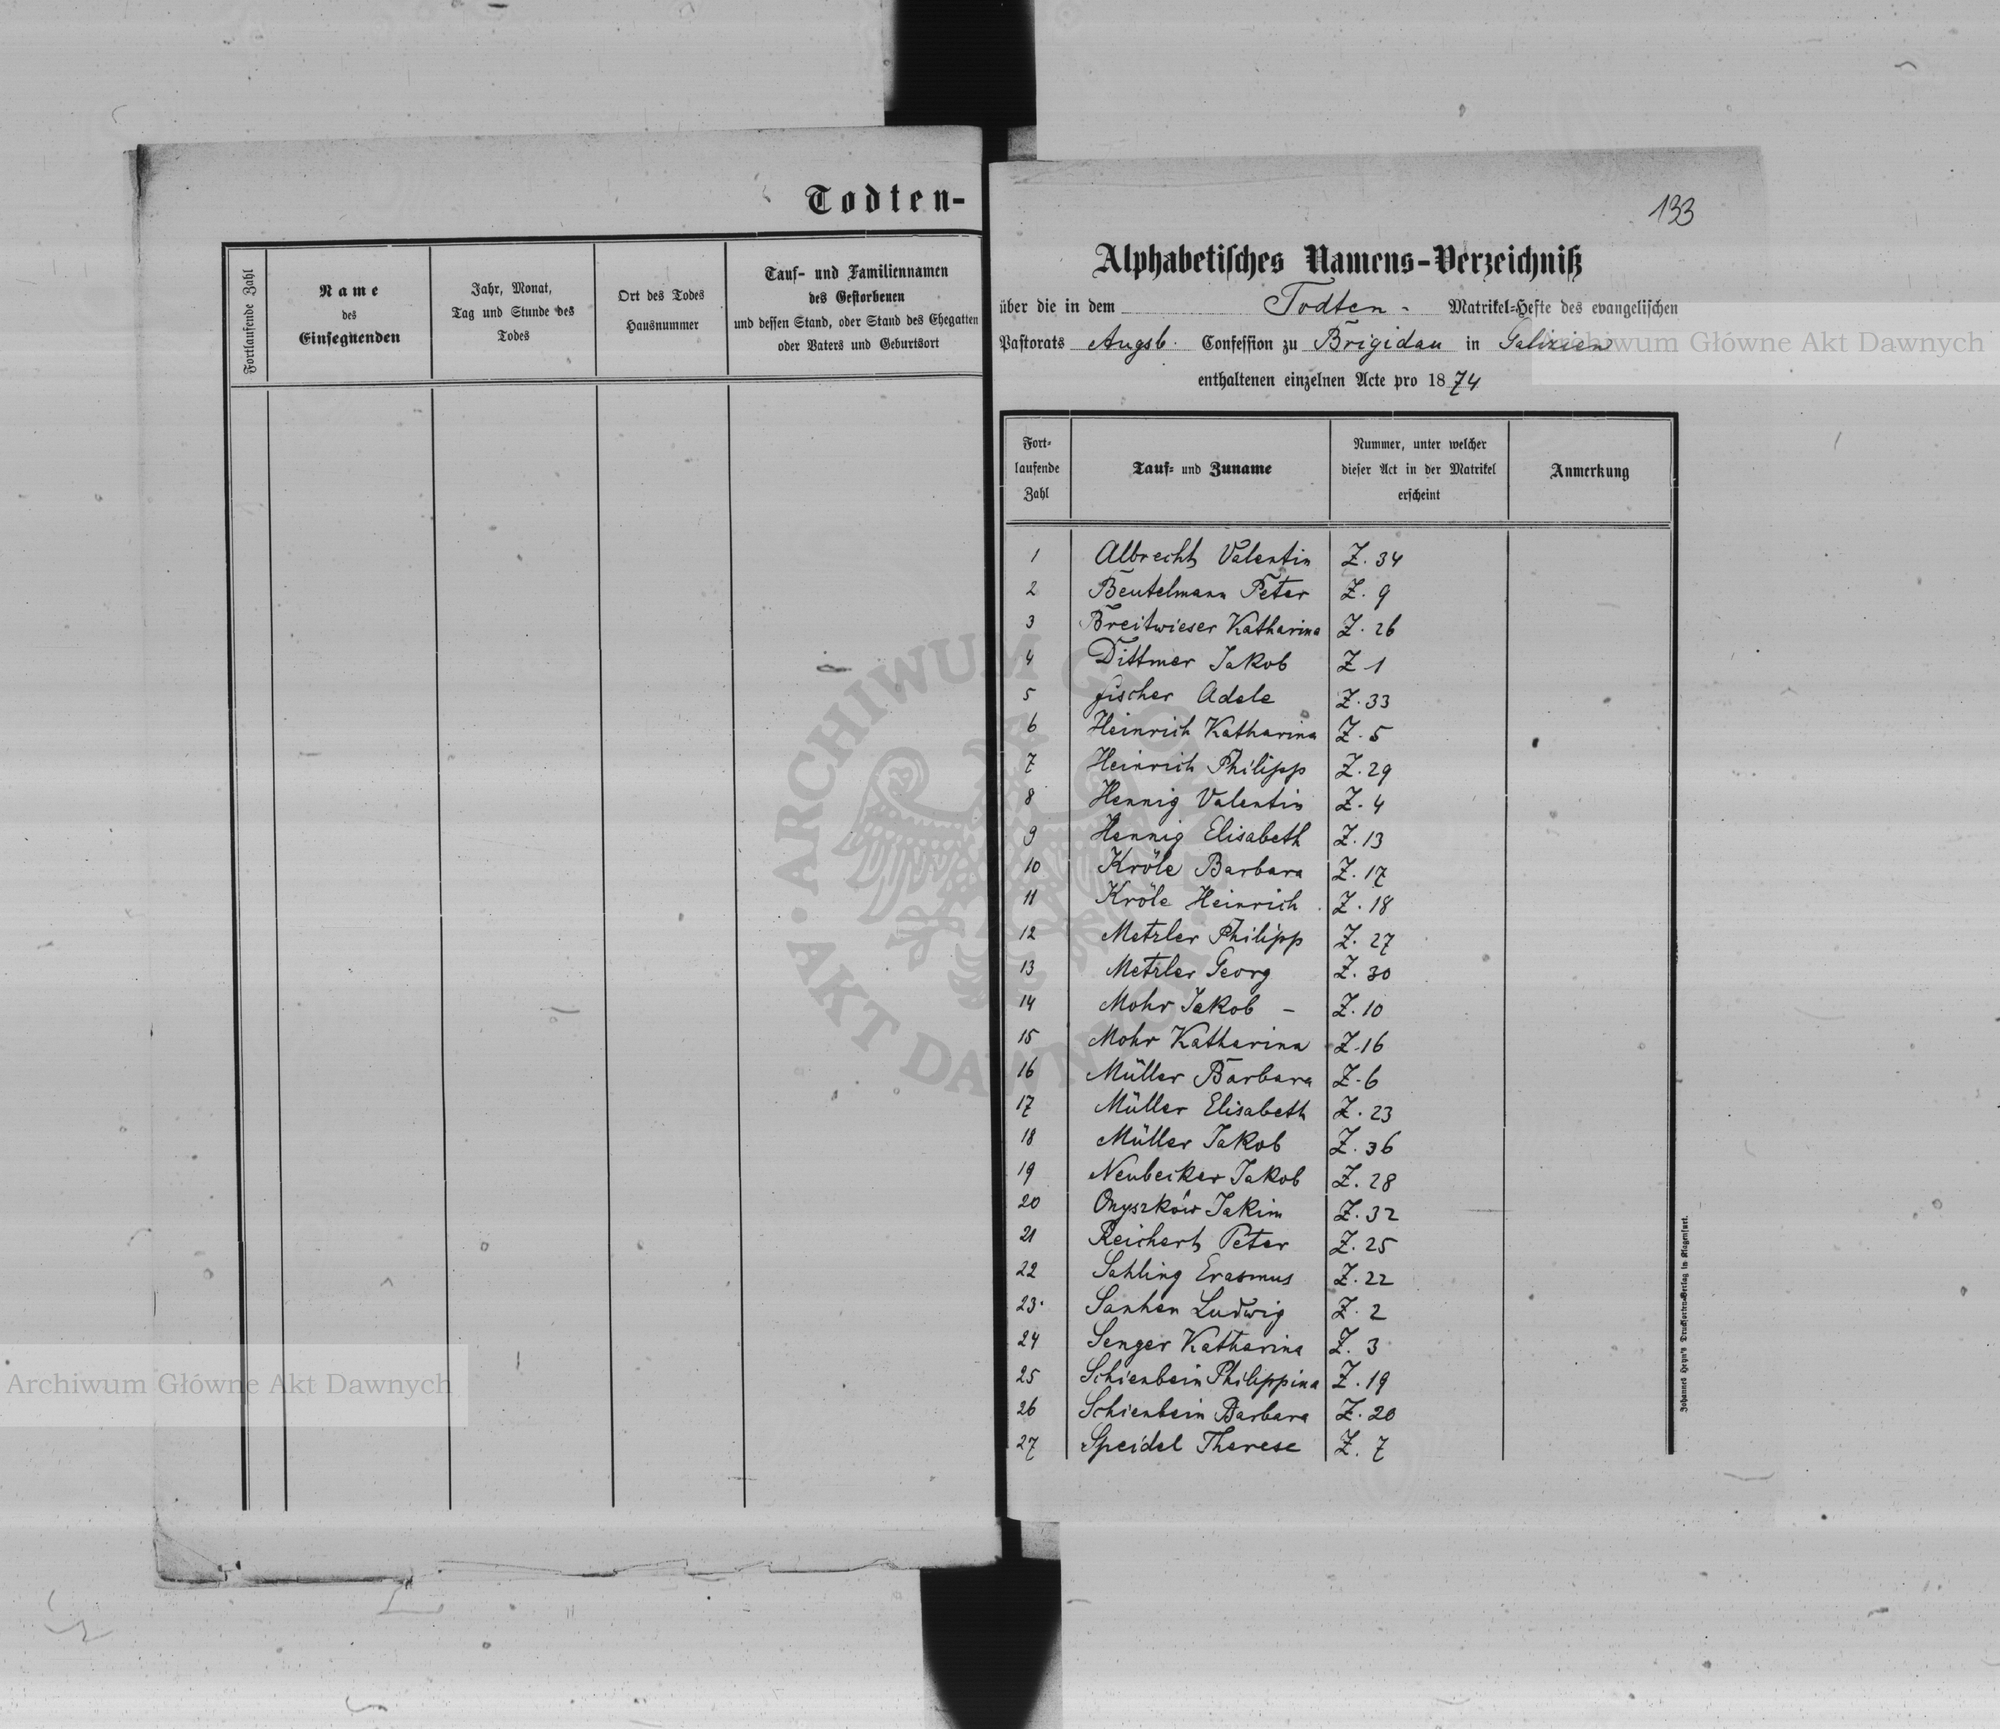 Todten-
Fortlaufende Zahl
Name
des
Einsegnenden
Jahr, Monat,
Tag und Stunde des
Todes
Ort des Todes
Hausnummer
Tauf- und Familiennamen
des Gestorbenen
und dessen Stand, oder Stand des Ehegatten
oder Vaters und Geburtsort
133
Alphabetisches Namens-Verzeichniß
über die in dem Todten- Matrikel-Hefte des evangelischen
Pastorats Augsb. Confession zu Brigidau in Galizien
enthaltenen einzelnen Acte pro 1874
Fort-
laufende
Zahl
Tauf- und Zuname
Nummer, unter welcher
dieser Act in der Matrikel
erscheint
Anmerkung
1 Albrecht Valentin Z. 34
2 Beutelmann Peter Z. 9
3 Breitwieser Katharina Z. 26
4 Dittmer Jakob Z 1
5 Fischer Adele Z. 33
6 Heinrich Katharina Z. 5
7 Heinrich Philipp Z. 29
8 Hennig Valentin Z. 4
9 Hennig Elisabeth Z. 13
10 Kröle Barbara Z. 17
11 Kröle Heinrich Z. 18
12 Metzler Philipp Z. 27
13 Metzler Georg Z. 30
14 Mohr Jakob – Z. 10
15 Mohr Katharina Z. 16
16 Müller Barbara Z. 6
17 Müller Elisabeth Z. 23
18 Müller Jakob Z. 36
19 Neubecker Jakob Z. 28
20 Onyszków Jakim Z. 32
21 Reichert Peter Z. 25
22 Sahling Erasmus Z. 22
23. Sanhen Ludwig Z. 2
24 Senger Katharina Z. 3
25 Schienbein Philippina Z. 19
26 Schienbein Barbara Z. 20
27 Speidel Therese Z. 7
Johannes Heyn's Drucksorten-Verlag in Klagenfurt.
Archiwum Główne Akt Dawnych
Archiwum Główne Akt Dawnych
ARCHIWUM GŁÓWNE AKT DAWNYCH